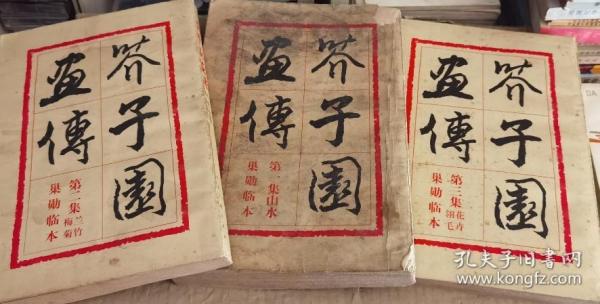 芥子園
畫傳
第二集 兰竹梅菊
巢勋临本
芥子園
畫傳
第一集山水
巢勋临本
芥子園
畫傳
第三集 花卉翎毛
巢勋临本
孔夫子旧书网
www.kongfz.com